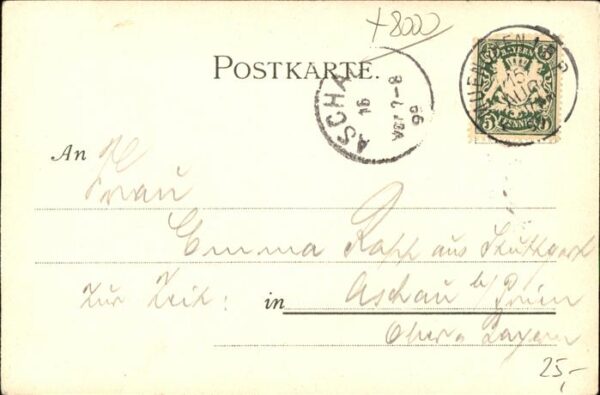 +8000
POSTKARTE.
BAYERN
5 5
PFENNIG
ASCHA
16
8-9 VM
99
An
Frau
Emma Rapp aus Stuttgart
zur Zeit: in Aschau b/ Prien
Ober-Bayern
25,-